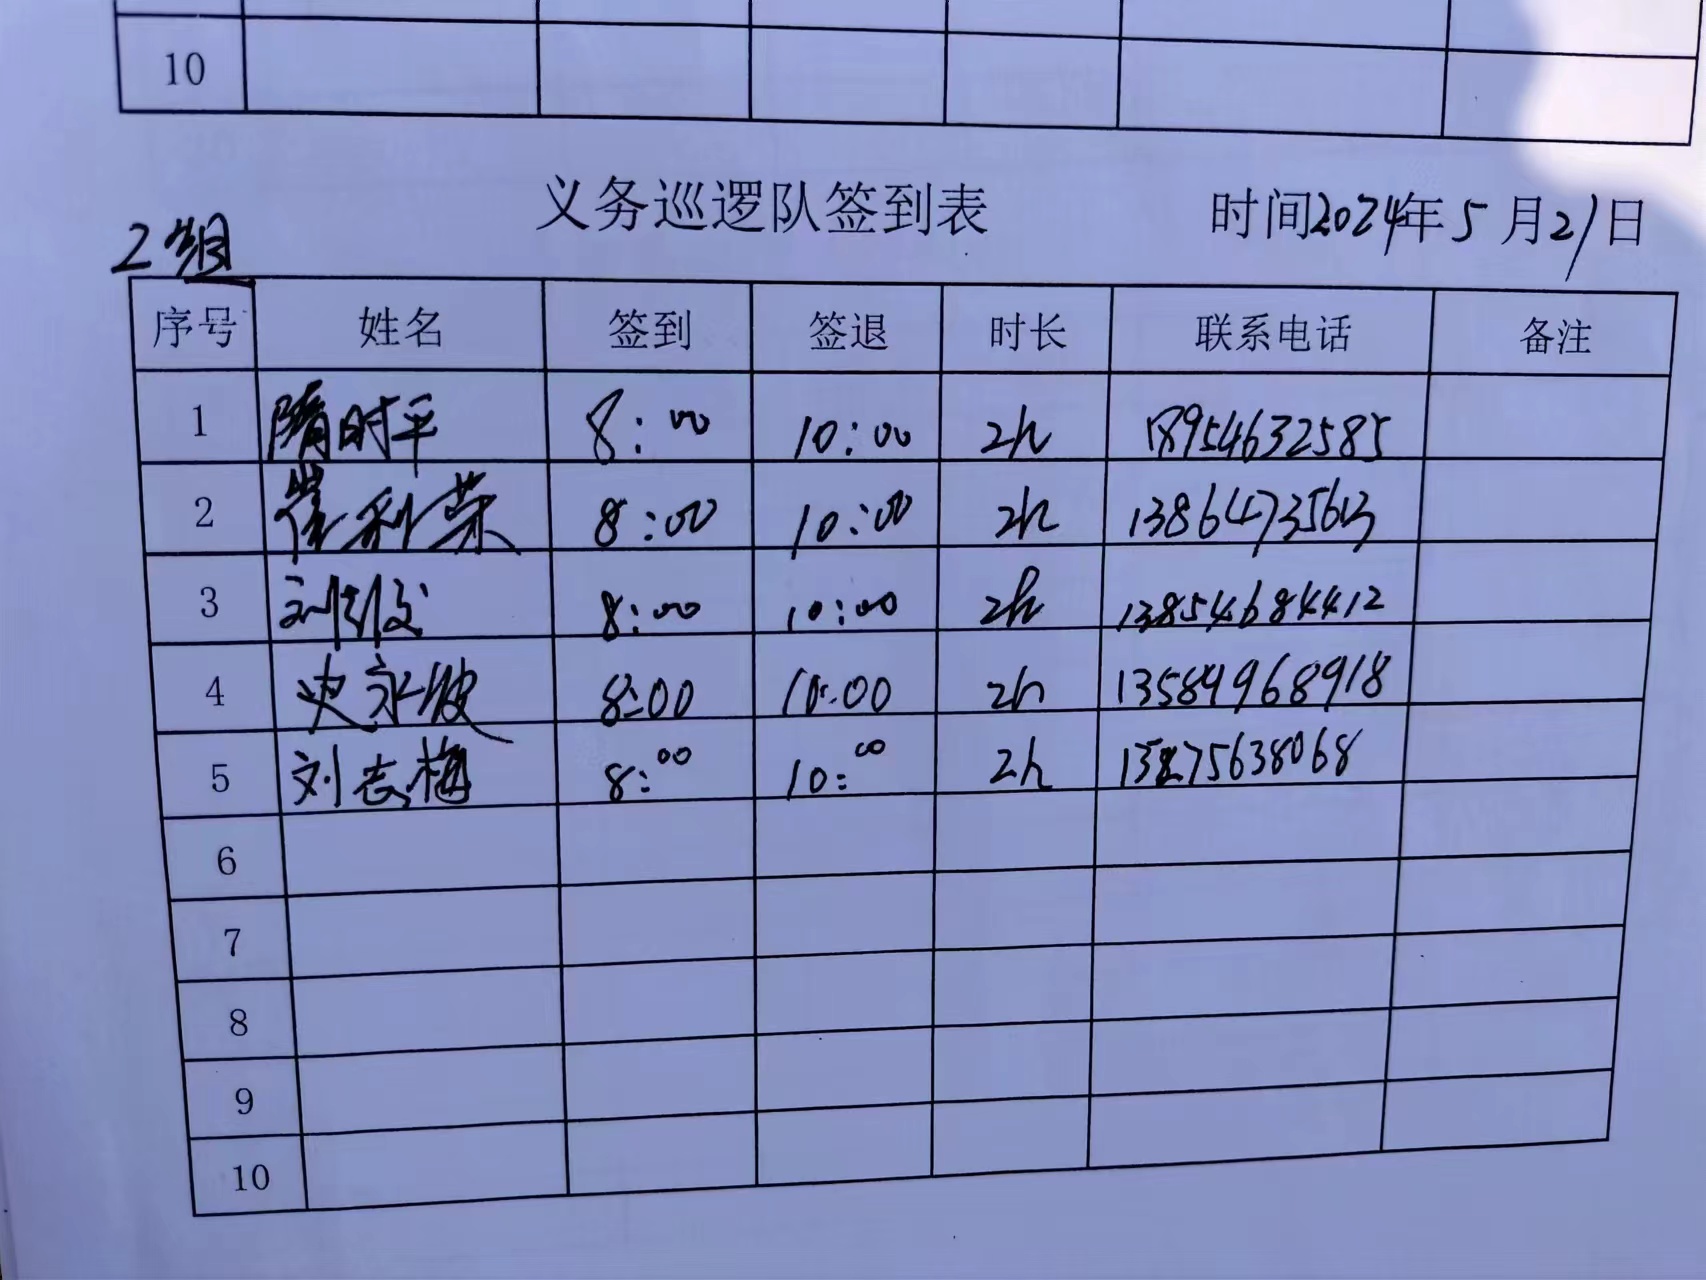 10
义务巡逻队签到表 时间2024年5月21日
2组
序号 姓名 签到 签退 时长 联系电话 备注
1 隋时平 8:00 10:00 2h 18954632585
2 崔利荣 8:00 10:00 2h 13864735613
3 8:00 10:00 2h 13854684412
4 史永波 8:00 10:00 2h 13589968918
5 刘志梅 8:00 10:00 2h
6
7
8
9
10